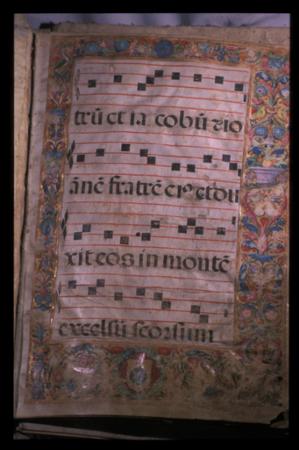 trū et ia cobū zio
ānē fratrē eiꝰ et du
xit eos in montē
excelsū seorsum